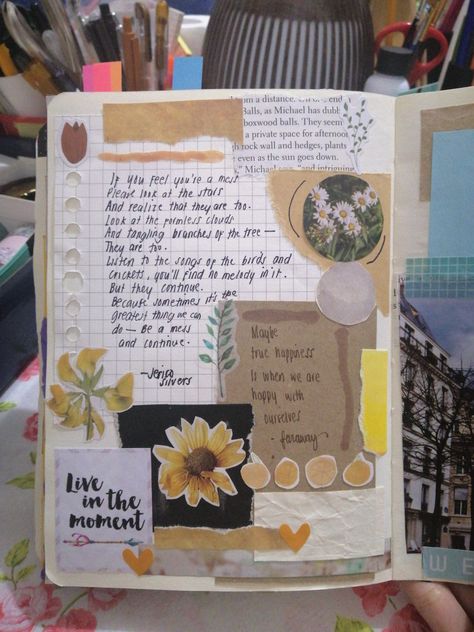 from a distance.
Balls, as Michael has dubb
boxwood balls. They seem
a private space for afternoon
rock wall and hedges, plants
even as the sun goes down.
If you feel you're a mess
Please look at the stars
And realize that they are too.
Look at the formless clouds
And tangling branches of the tree —
They are too.
Listen to the songs of the birds and
crickets, you'll find no melody in it.
But they continue.
Because sometimes it's the
greatest thing we can
do — Be a mess
and continue.
- Jerico
Silvers
Maybe
true happiness
Is when we are
happy with
ourselves
- faraway
Live
in the
moment
WE